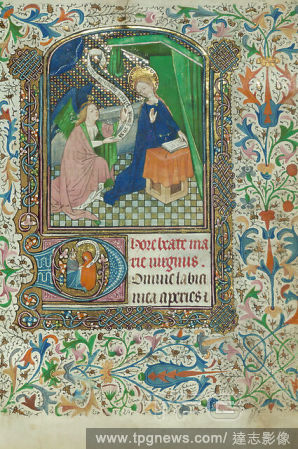 hore beate ma
rie virginis.
Domine labia
mea aperies
www.tpgnews.com/ 達志影像